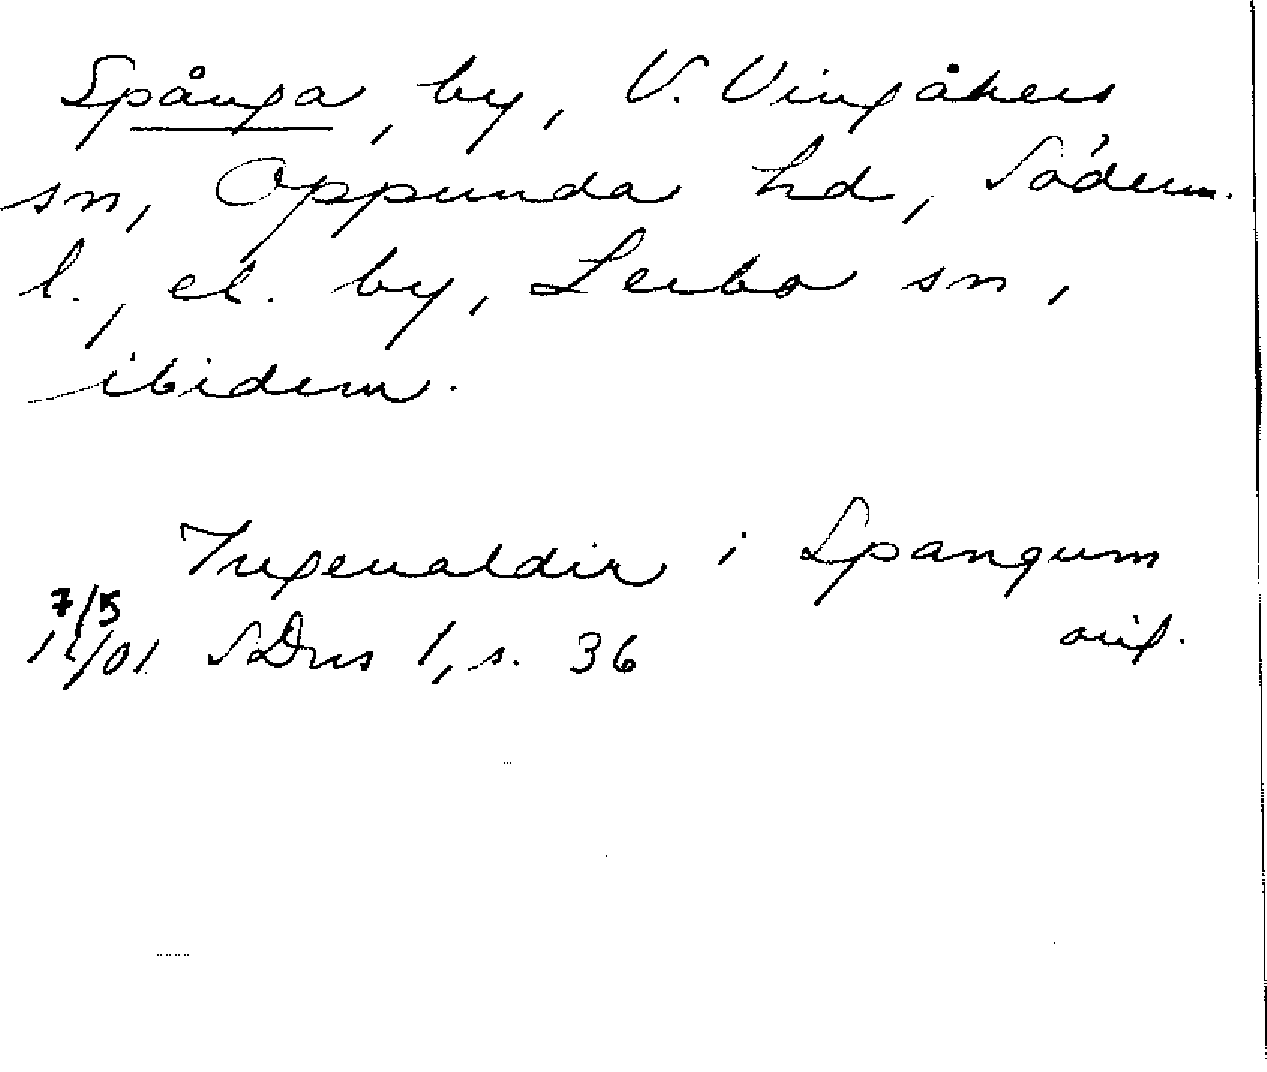 Spånga, by, V. Vingåkers
sn, Oppunda hd, Söderm.
l., el. by, Lerbo sn,
ibidem.
Ingeualdir i Spangum
7/5
1401 SDns 1, s. 36 orig.